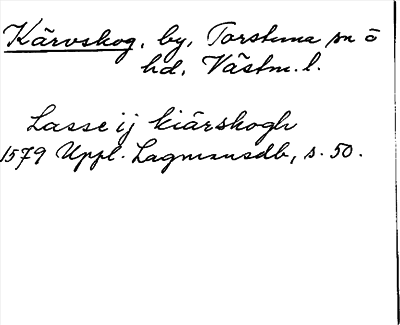 Kärvskog, by, Torstuna sn o
hd, Västm. l.
Lasse ij kiärskogh
1579 Uppl. Lagmansdb, s. 50.